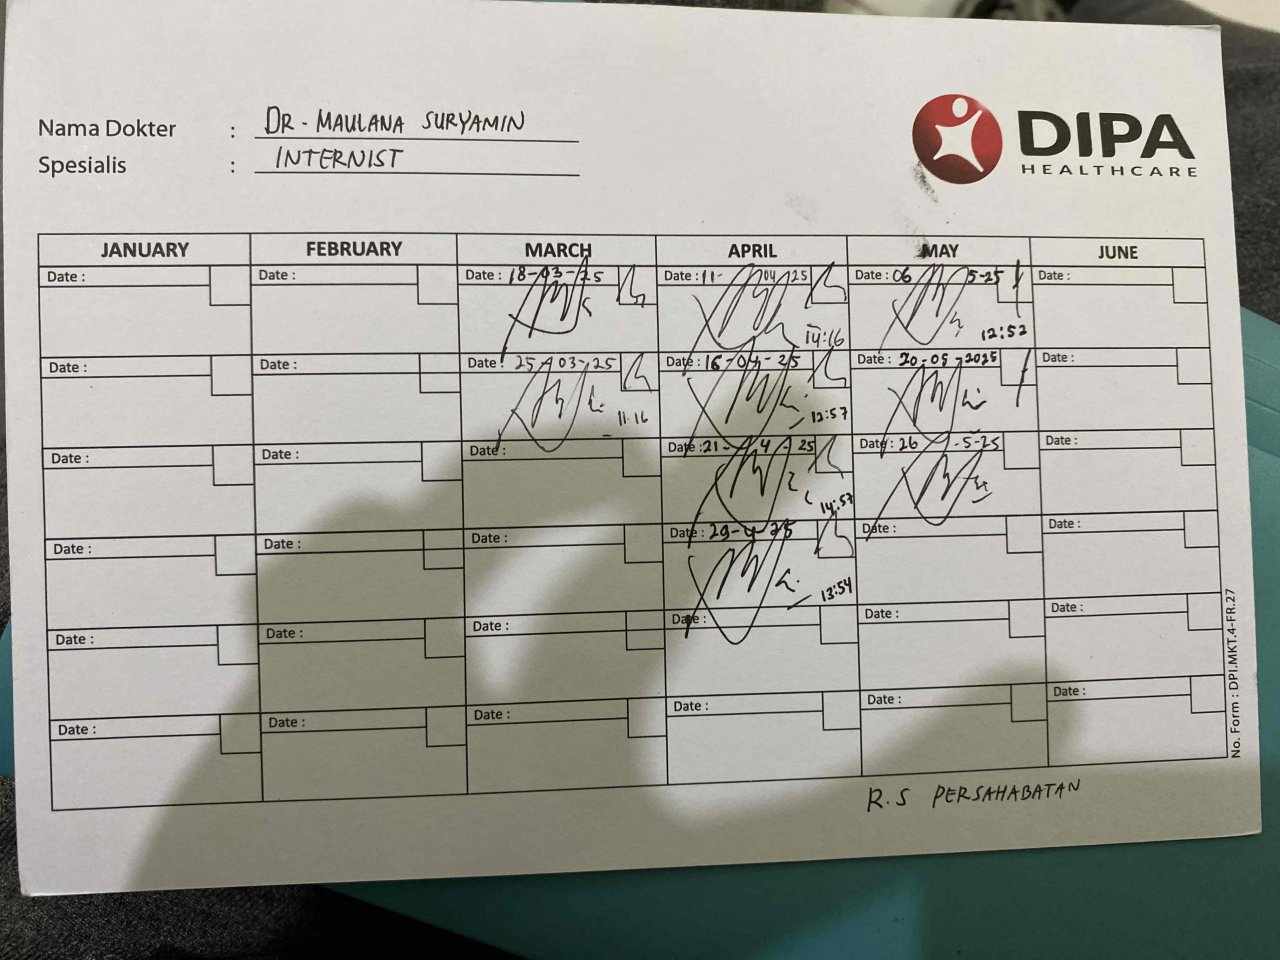 Nama Dokter : DR. MAULANA SURYAMIN
Spesialis : INTERNIST
DIPA
HEALTHCARE
JANUARY FEBRUARY MARCH APRIL MAY JUNE
Date : Date : Date : 18-03-25 Date : 11-04 25 Date : 06 5-25 Date :
14:16 12:52
Date : Date : Date : 25-03-25 Date : 16-04-25 Date : 20-05-2025 Date :
11:16 12:57
Date : Date : Date : Date : 21-4 25 Date : 26 -5-25 Date :
14:57
Date : Date : Date : Date : 29-4-25 Date : Date :
13:54
Date : Date : Date : Date : Date : Date :
Date : Date : Date : Date : Date : Date :
No. Form : DPI.MKT.4-FR.27
R.S PERSAHABATAN